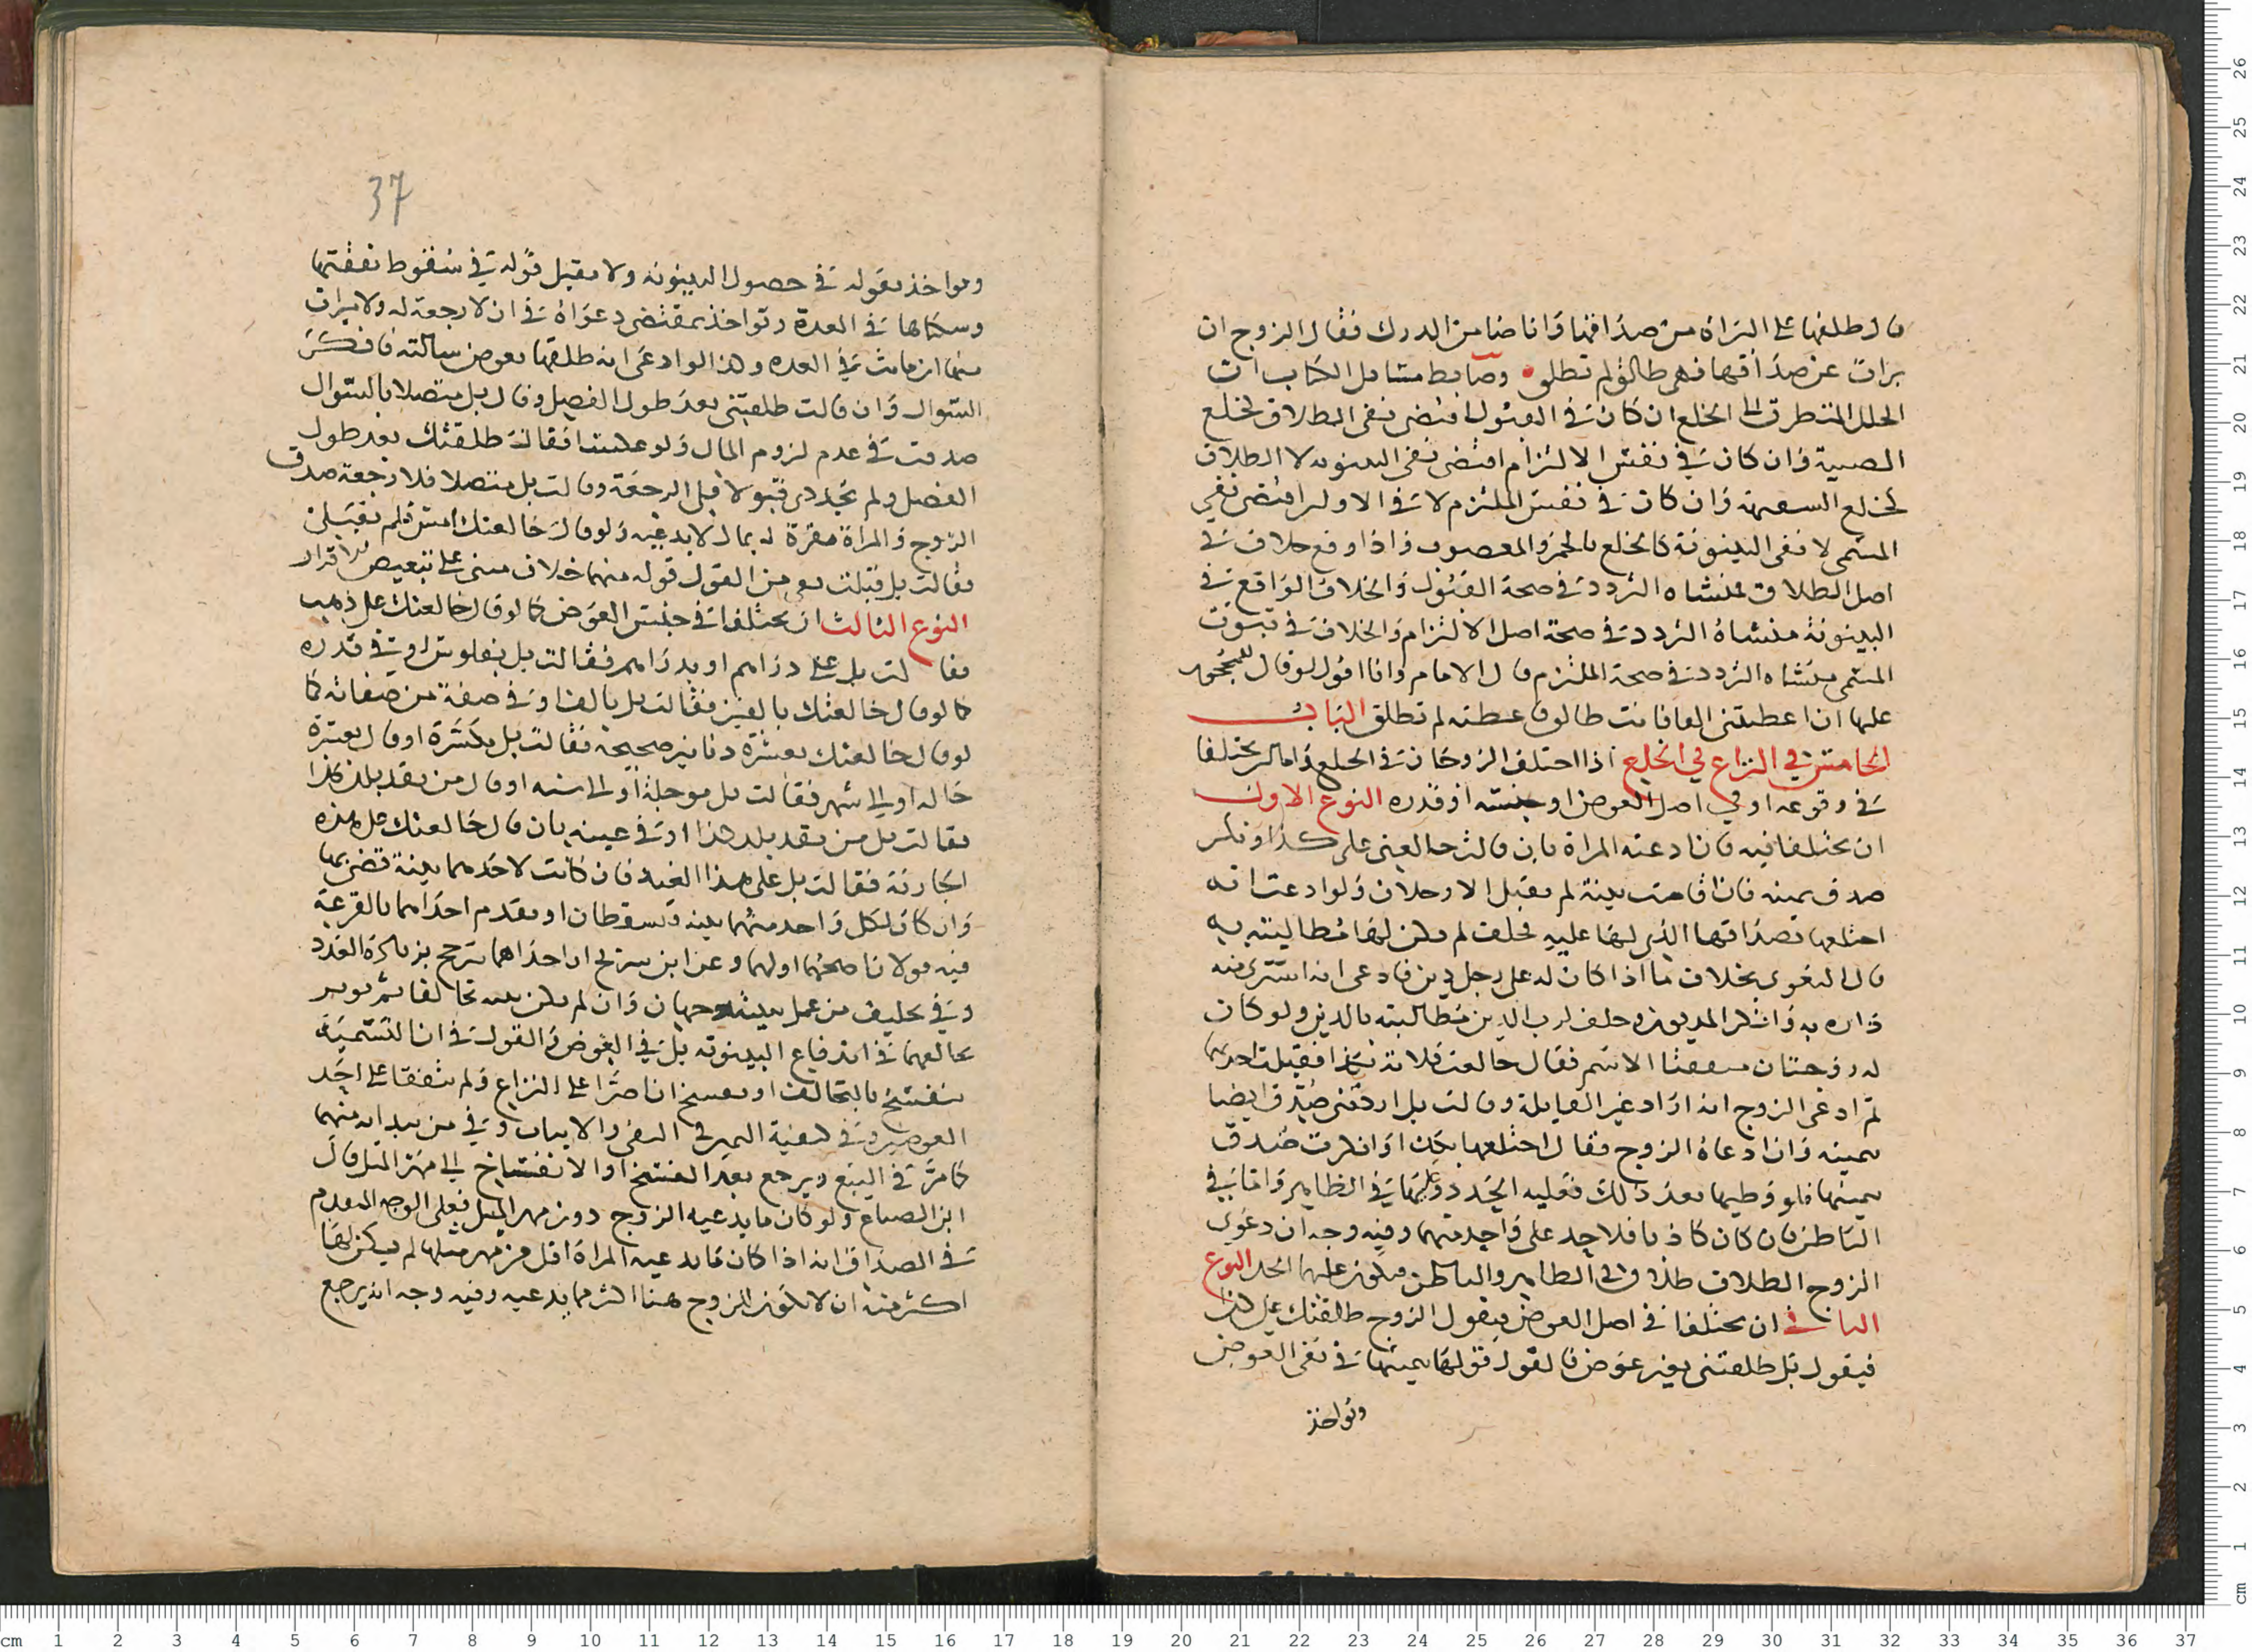 قال طلقها على البراة من صداقها وانا ضامن الدرك فقال الزوج ان
برات عن صداقها فهي طالق لم تطلق وضابط مسايل الكتاب ان
الخلل المتطرق الى الخلع ان كان في القبول اقتضى نفي الطلاق كخلع
الصبية وان كان في نفس الالتزام اقتضى نفي البينونه لا الطلاق
كخلع السفيهة وان كان في نفس الملتزم لا في الاولـ اقتضى نفي
المسمى لا نفي البينونة كالخلع بالخمر والمغصوب واذا وقع خلاف في
اصل الطلاق فمنشاه التردد في صحة القبول والخلاف الواقع في
البينونة منشاه التردد في صحة اصل الالتزام والخلاف في ثبوت
المسمى منشاه التردد في صحة الملتزم قال الامام وانا اقول لو قال للمحجور
عليها ان اعطيتني الفا فانت طالق فاعطته لم تطلق الباب
الخامس في النزاع في الخلع اذا اختلف الزوجان في الخلع فاما ان يختلفا
في وقوعه او في اصل العوض او جنسه او قدره النوع الاول
ان يختلفا فيه فان ادعته المراة بان قالت خالعتني على كذا وانكر
صدق بيمينه فان اقامت بينة لم يقبل الا رجلان ولو ادعت انه
اختلعها بصداقها الذي لها عليه فحلف لم يكن لها مطالبته به
قال البغوي بخلاف ما اذا كان له على رجل دين فادعى انه اشترى منه
داره به وانكر المديون وحلف لرب الدين مطالبته بالدين ولو كان
له زوجتان متفقتا الاسم فقال خالعت فلانة بكذا فقبلت احديهما
ثم ادعى الزوج انه اراد غير القابلة وقالت بل اردتني صدق ايضا
بيمينه وان ادعاه الزوج فقال اختلعها بكذا وانكرت صدقت
بيمينها فلو وطيها بعد ذلك فعليه الحد دونها في الظاهر واما في
الباطن فان كان كاذبا فلا حد على واحد منهما وفيه وجه ان دعوى
الزوج الطلاق طلاق في الظاهر والباطن فيكون عليهما الحد النوع
الثاني ان يختلفا في اصل العوض فيقول الزوج طلقتك على كذا
فيقول بل طلقتني بغير عوض فالقول قولها بيمينها في نفي العوض
ويواخذ
37
ويواخذ بقوله في حصول البينونه ولا يقبل قوله في سقوط نفقتها
وسكناها في العدة وتواخذ بمقتضى دعواه في ان لا رجعة له ولا ميراث
منها ان ماتت في العده وهذا لو ادعى انه طلقها بعوض سالته فانكرت
السوال وان قالت طلقتني بعد طول الفصل وقال بل متصلا بالسوال
صدقت في عدم لزوم المال ولو عكسا فقال طلقتك بعد طول
الفصل ولم تجددي قبولا فلي الرجعة وقالت بل متصلا فلا رجعة صدق
الزوج والمراة مقرة له بمال لا يدعيه ولو قال خالعتك امس فلم تقبلي
فقالت بل قبلت ففي من القول قوله منهما خلاف مبني على تبعيض الاقرار
النوع الثالث ان يختلفا في جنس العوض كما لو قال خالعتك على ذهب
فقالت بل على دراهم او بدراهم فقالت بل بفلوس او في قدره
كما لو قال خالعتك بالفين فقالت بل بالف او في صفة من صفاته كما
لو قال خالعتك بعشرة دنانير صحيحة فقالت بل مكسرة او قال بعشرة
حالة او الى شهر فقالت بل موجلة او الى سنه او قال من نقد بلد كذا
فقالت بل من نقد بلد هذا او في عينه بان قال خالعتك على هذه
الجارية فقالت بل على هذا العبد فان كانت لاحدهما بينة قضي بها
وان كان لكل واحد منهما بينه فتسقطان او يقدم احداهما بالقرعة
فيه قولان اصحهما اولهما وعن ابن سريج ان احداهما ترجح بزيادة العدد
وفي تحليف من عمل ببينته وجهان وان لم يكن بينه تحالفا ثم يوثر
تحالفهما في اندفاع البينونه بل في العوض والقول في ان التسمية
تنفسخ بالتحالف او تفسخ ان اصرا على النزاع ولم يتفقا على احد
العوضين وفي كيفية اليمين في النفي والاثبات وفي من يبدا به منهما
كما مر في البيع ويرجع بعد الفسخ او الانفساخ الى مهر المثل قال
ابن الصباغ ولو كان ما يدعيه الزوج دون مهر المثل فعلى الوجه المقدم
في الصداق انه اذا كان ما تدعيه المراة اقل من مهر مثلها لم يكن لها
اكثر منه ان لا يكون للزوج هنا اكثر مما يدعيه وفيه وجه انه يرجع